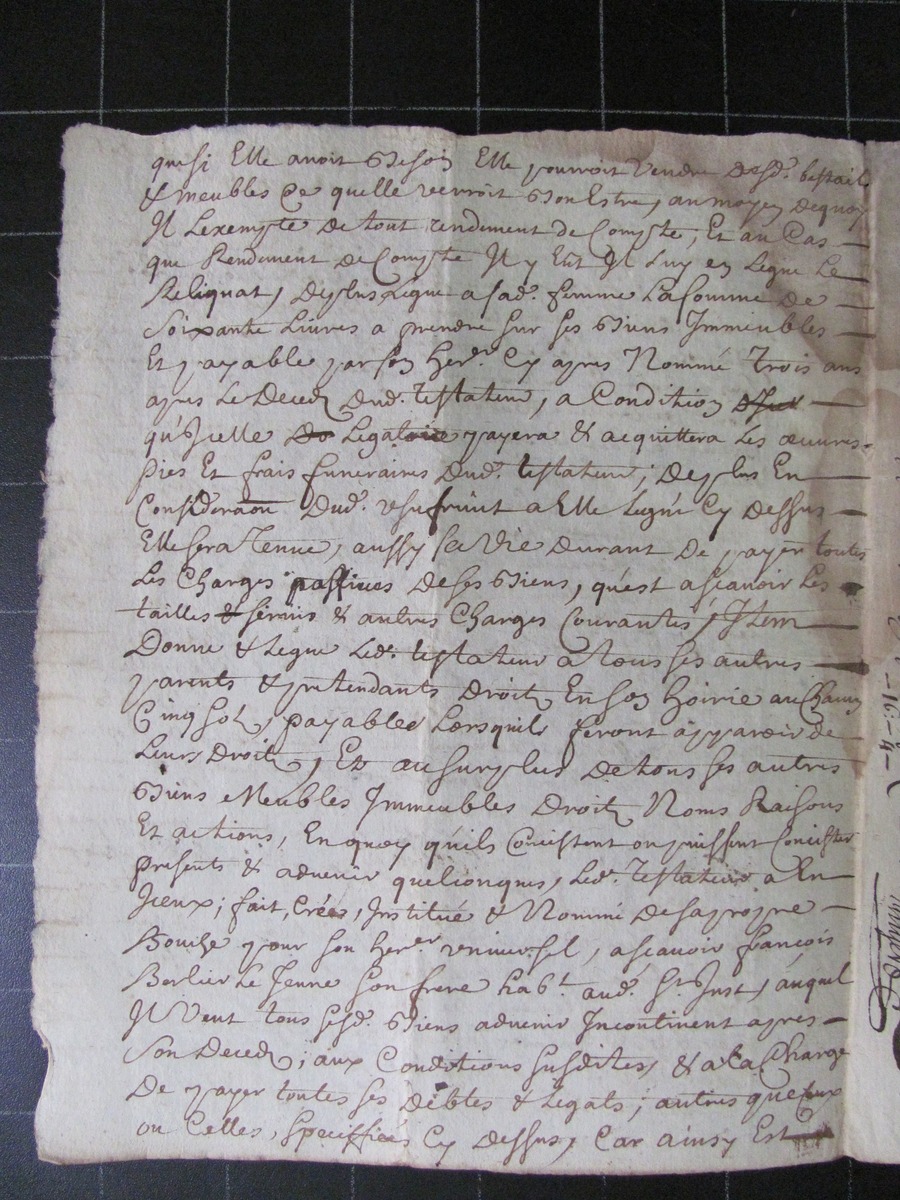 que si Elle avoit Besoin Elle pourroit Vendre desd. bestail
& meubles Ce quelle verroit Bon Estre, au moyen dequoy
Il Lexempte de tout rendement de Compte, Et au Cas
que Rendement de Compte Il y Eut Il Luy en Legue Le
Reliquat, de plus Legue a sad. femme La somme de
Soixante Livres a prendre sur ses Biens Immeubles
Et payable par son her.r Cy apres Nommé Trois ans
apres Le Deced dud. testateur, a Condition
qu'Icelle Legataire payera & acquittera Les œuvres
pies Et frais funeraires dud. testateur; de plus En
Consideraon dud. usufruit a Elle Legué Cy dessus
Elle sera Tenue, aussy sa Vie durant de payer toutes
Les Charges passives de ses Biens, qu'est ascavoir Les
tailles & servis & autres Charges Courantes, Item
Donne & Legue Led. testateur a tous ses autres
parents & pretendants Droit En son hoirie au Chacun
Cinq sol, payables Lorsquils feront apparoir de
Leurs Droit, Et au surplus de tous ses autres
Biens Meubles Immeubles Droit Noms Raisons
Et actions, En quoy qu'ils Concistent ou puissent Concister
presents & advenir quelconques, Led. Testateur a En
Iceux; fait, Créé, Institué & Nommé de sa propre
Bouche pour son her.er universel, ascavoir françois
Berlier Le Jeune son frere hab.t aud. St. Just, auquel
Il Veut tous sesd. Biens advenir Incontinent apres
Son Deced; aux Conditions susdites, & a la Charge
De payer toutes ses debtes & Legats; autres que Ceux
ou Celles, speciffiées Cy dessus, Car ainsy Est